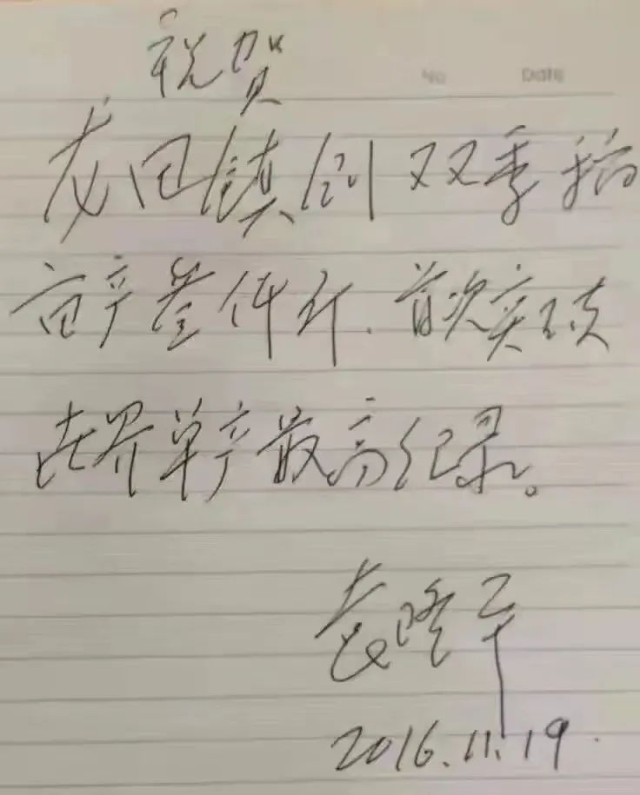 No Date
祝贺
龙田镇创双季稻
亩产叁仟斤.首次突破
世界单产最高纪录。
袁隆平
2016.11.19.